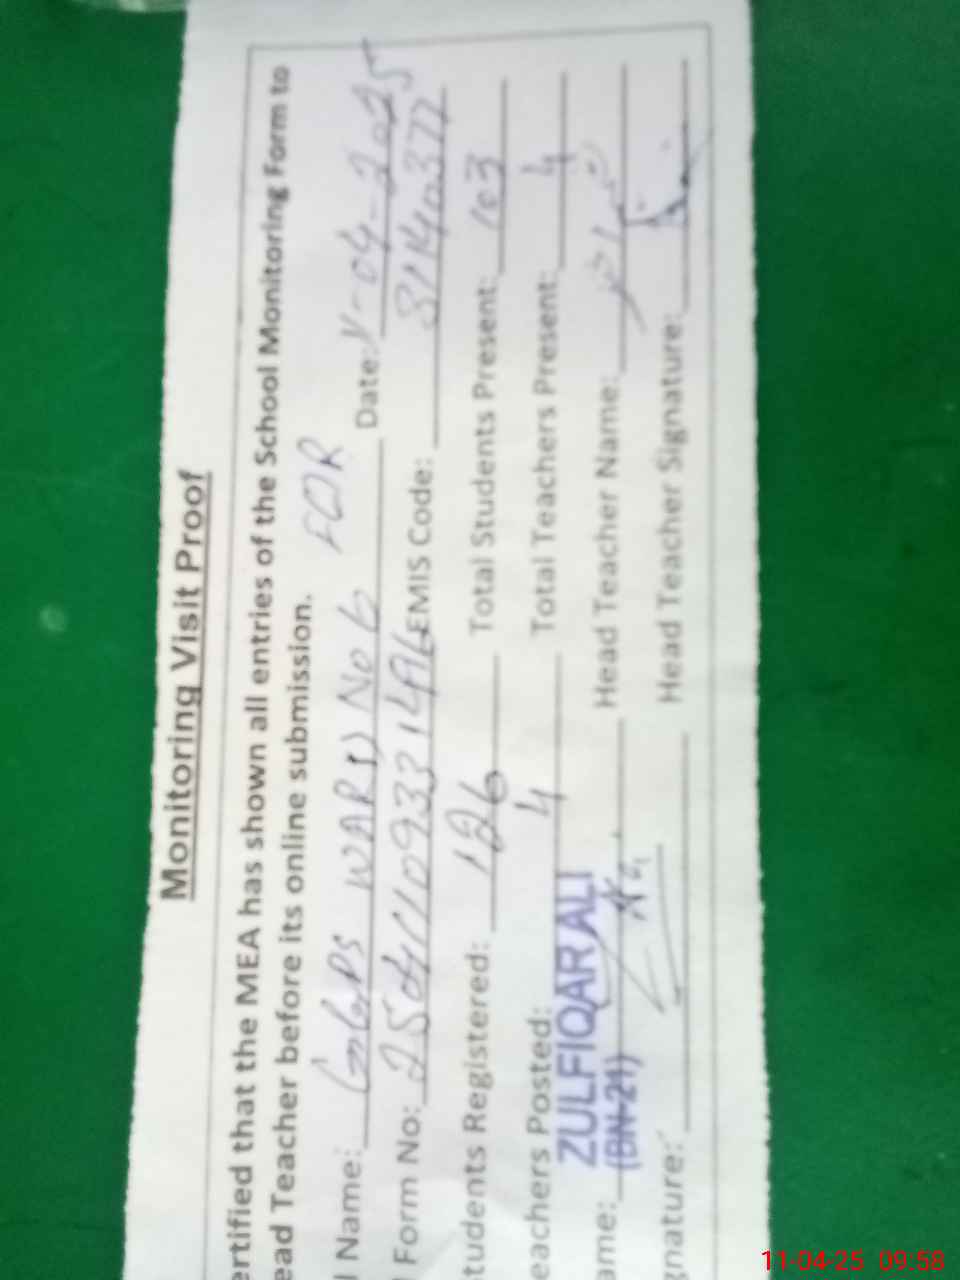 Monitoring Visit Proof
ertified that the MEA has shown all entries of the School Monitoring Form to
ead Teacher before its online submission.
l Name: GGPS WARS) No 6 FQR Date: 11-04-2025
l Form No: EMIS Code: 31140377
tudents Registered: 126 Total Students Present: 103
eachers Posted: 4 Total Teachers Present: 4
ame: ZULFIQAR ALI Head Teacher Name:
(BN-21)
gnature: Head Teacher Signature:
11-04-25 09:58